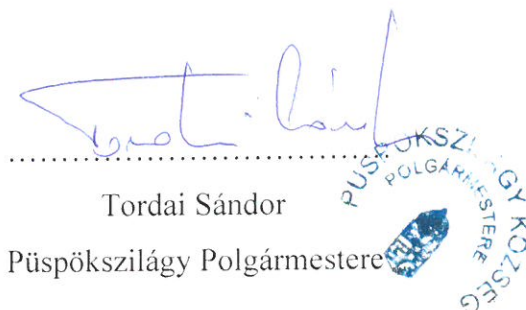 Tordai Sándor
................................................
Tordai Sándor
Püspökszilágy Polgármestere
PÜSPÖKSZILÁGY KÖZSÉG
POLGÁRMESTERE